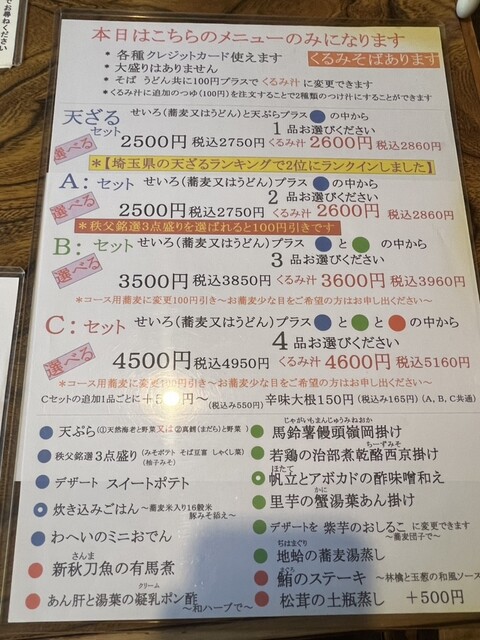 でお尋ねください
本日はこちらのメニューのみになります
* 各種クレジットカード使えます
くるみそばあります
* 大盛りはありません
* そば うどん共に100円プラスで くるみ汁 に変更できます
*くるみ汁に追加のつゆ(100円)を注文することで2種類のつけ汁にすることができます
天ざるセット せいろ(蕎麦又はうどん)と天ぷらプラス●の中から
1品お選びください
選べる 2500円 税込2750円 くるみ汁 2600円 税込2860円
*【埼玉県の天ざるランキングで2位にランクインしました】
A:セット せいろ(蕎麦又はうどん)プラス ● の中から
2品お選びください
選べる 2500円 税込2750円 くるみ汁 2600円 税込2860円
*秩父銘選3点盛りを選ばれると100円引きです
B:セット せいろ(蕎麦又はうどん)プラス ●と● の中から
3品お選びください
選べる 3500円 税込3850円 くるみ汁 3600円 税込3960円
*コース用蕎麦に変更100円引き~お蕎麦少な目をご希望の方はお申し出ください~
C:セット せいろ(蕎麦又はうどん)プラス ●と●と●の中から
4品お選びください
選べる 4500円 税込4950円 くるみ汁 4600円 税込5160円
*コース用蕎麦に変更100円引き~お蕎麦少な目をご希望の方はお申し出ください~
Cセットの追加1品ごとに +500円~(税込み550円) 辛味大根150円(税込み165円)(A、B、C共通)
● 天ぷら(①天然海老と野菜 又は ②真鱈(まだら)と野菜)
● 秩父銘選3点盛り(みそポテト そば豆富 しゃくし菜)(柚子みそ)
● デザート スイートポテト
● 炊き込みごはん ~蕎麦米入り16穀米 豚みそ詰え~
● わへいのミニおでん
● 新秋刀魚の有馬煮
さんま
● あん肝と湯葉の凝乳ポン酢 ~和ハーブで~
クリーム
じゃがいもまんじゅうみねおか
● 馬鈴薯饅頭嶺岡掛け
● 若鶏の治部煮乾酪西京掛け
ちーずみそ
ほたて
● 帆立とアボカドの酢味噌和え
かに
● 里芋の蟹湯葉あん掛け
● デザートを 紫芋のおしるこ に変更できます ~蕎麦団子で~
ぢはまぐり
● 地蛤の蕎麦湯蒸し
まぐろ
● 鮪のステーキ ~林檎と玉葱の和風ソース
● 松茸の土瓶蒸し +500円